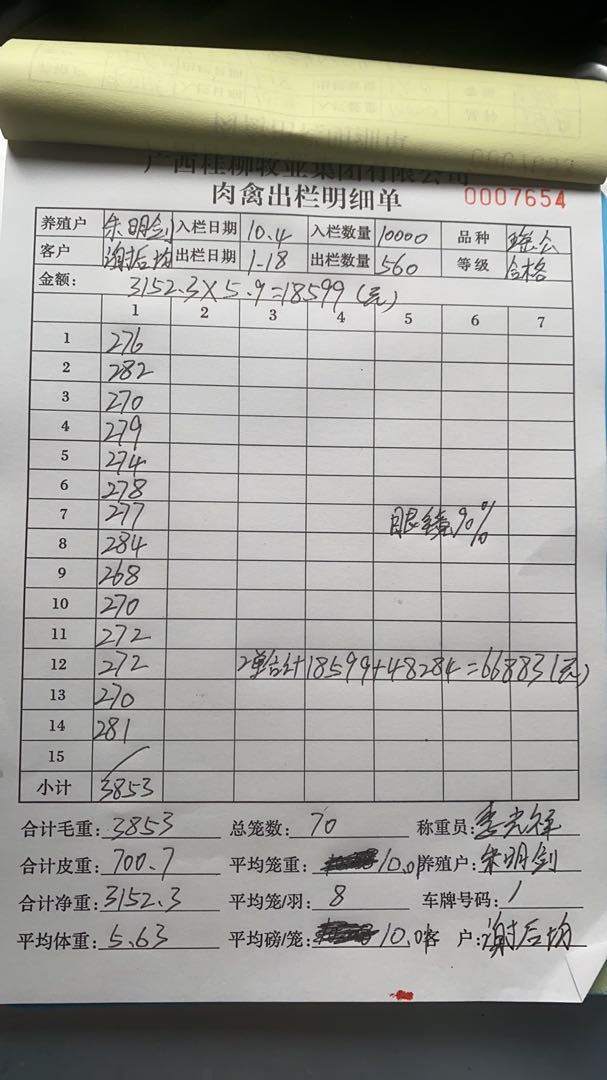 广西桂柳牧业集团有限公司
肉禽出栏明细单 0007654
养殖户 朱明剑 入栏日期 10.4 入栏数量 10000 品种
客户 谢后均 出栏日期 1-18 出栏数量 560 等级 合格
金额: 3152.3×5.9=18599(元)
1 2 3 4 5 6 7
1 276
2 282
3 270
4 279
5 274
6 278
7 277 眼镜90%
8 284
9 268
10 270
11 272
12 272 2单合计18599+48284=66883(元)
13 270
14 281
15
小计 3853
合计毛重: 3853 总笼数: 70 称重员: 李光祥
合计皮重: 700.7 平均笼重: 10.01 养殖户: 朱明剑
合计净重: 3152.3 平均笼/羽: 8 车牌号码: /
平均体重: 5.63 平均磅/笼: 10.01 客户: 谢后均